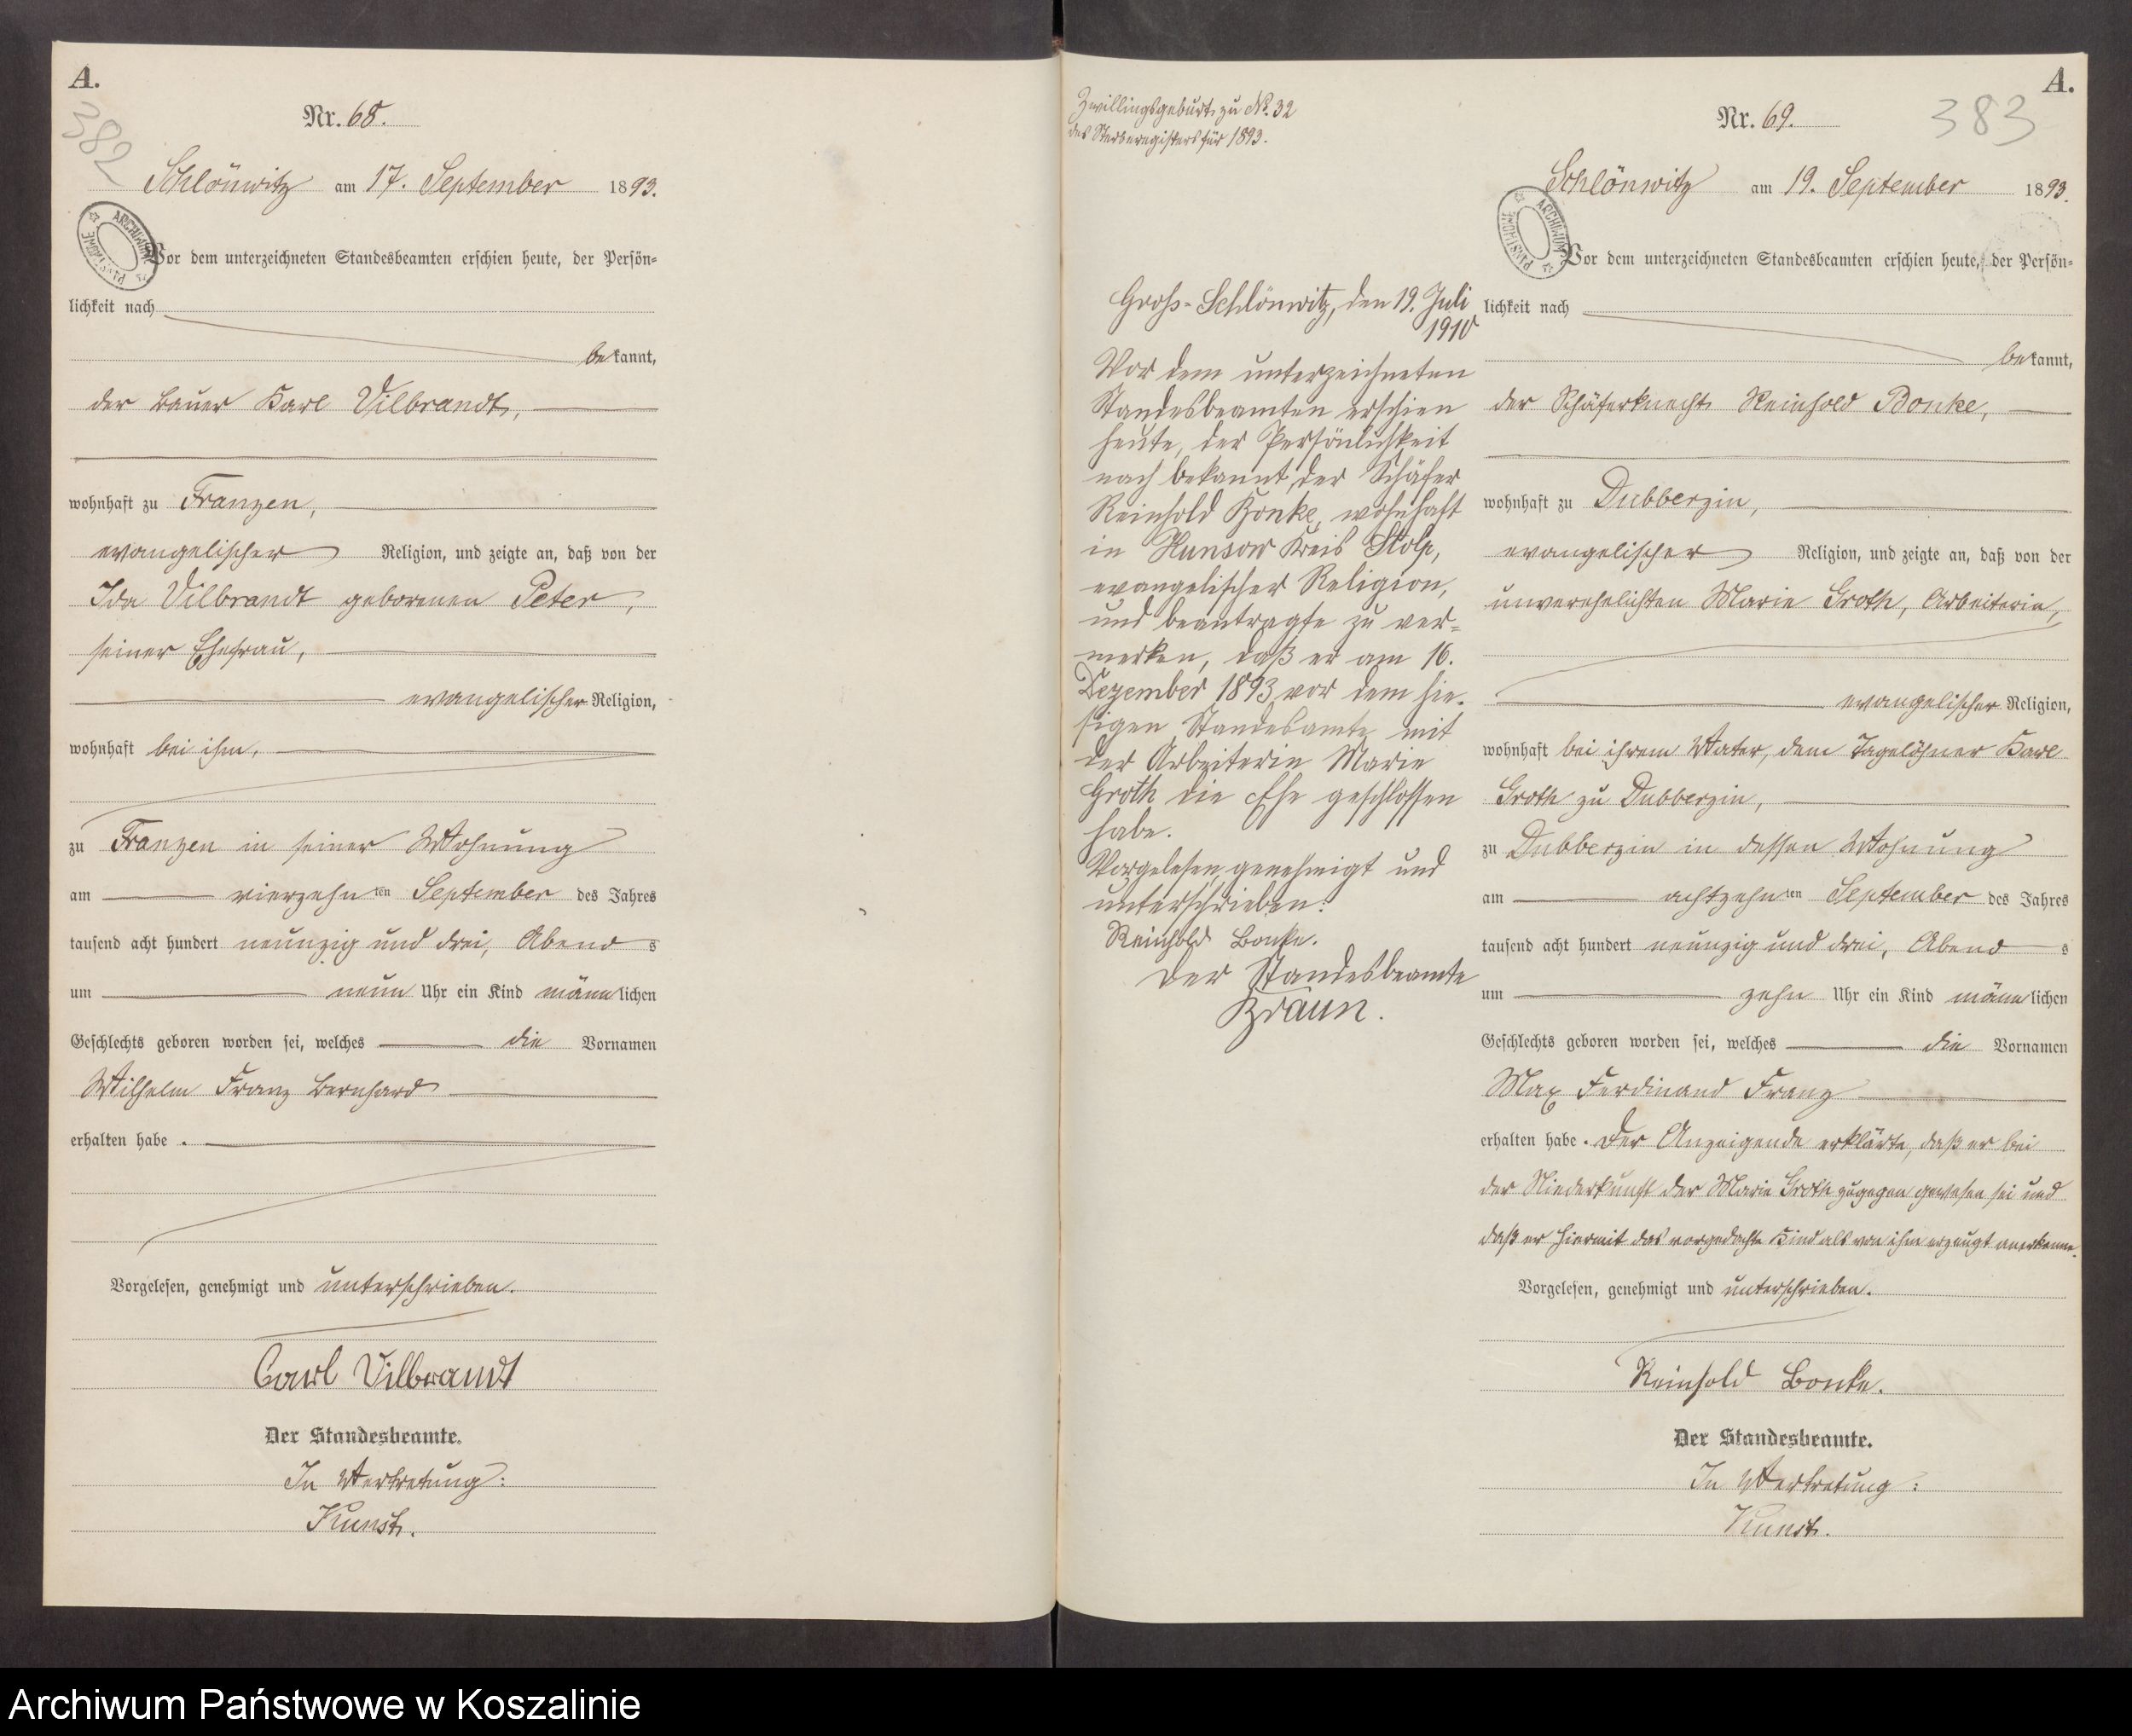 A.
382
Nr. 68.
Schlönwitz am 17. September 1893.
Vor dem unterzeichneten Standesbeamten erschien heute, der Persön-
lichkeit nach
bekannt,
der Bauer Karl Vilbrandt,
wohnhaft zu Franzen,
evangelischer Religion, und zeigte an, daß von der
Ida Vilbrandt geborenen Peter,
seiner Ehefrau,
evangelischer Religion,
wohnhaft bei ihm,
zu Franzen in seiner Wohnung
am vierzehnten September des Jahres
tausend acht hundert neunzig und drei, Abends
um neun Uhr ein Kind männlichen
Geschlechts geboren worden sei, welches die Vornamen
Wilhelm Franz Bernhard
erhalten habe.
Vorgelesen, genehmigt und unterschrieben.
Carl Vilbrandt
Der Standesbeamte.
In Vertretung:
Kunst.
Zwillingsgeburt zu No. 32
des Sterberegisters für 1893.
Groß-Schlönwitz, den 19. Juli
1910
Vor dem unterzeichneten
Standesbeamten erschien
heute, der Persönlichkeit
nach bekannt, der Schäfer
Reinhold Bonke, wohnhaft
in Kreis Stolp,
evangelischer Religion,
und beantragte zu ver-
merken, daß er am 16.
Dezember 1893 vor dem hie-
sigen Standesamte mit
der Arbeiterin Marie
Groth die Ehe geschlossen
habe.
Vorgelesen, genehmigt und
unterschrieben:
Reinhold Bonke.
Der Standesbeamte
Braun.
A.
383
Nr. 69.
Schlönwitz am 19. September 1893.
Vor dem unterzeichneten Standesbeamten erschien heute, der Persön-
lichkeit nach
bekannt,
der Schäferknecht Reinhold Bonke,
wohnhaft zu Dubberzin,
evangelischer Religion, und zeigte an, daß von der
unverehelichten Marie Groth, Arbeiterin,
evangelischer Religion,
wohnhaft bei ihrem Vater, dem Tagelöhner Karl
Groth zu Dubberzin,
zu Dubberzin in dessen Wohnung
am achtzehnten September des Jahres
tausend acht hundert neunzig und drei, Abends
um zehn Uhr ein Kind männlichen
Geschlechts geboren worden sei, welches die Vornamen
Max Ferdinand Franz
erhalten habe. Der Anzeigende erklärte, daß er bei
der Niederkunft der Marie Groth zugegen gewesen sei und
daß er hiermit das vorgedachte Kind als von ihm erzeugt anerkenne.
Vorgelesen, genehmigt und unterschrieben.
Reinhold Bonke.
Der Standesbeamte.
In Vertretung:
Kunst.
Archiwum Państwowe w Koszalinie